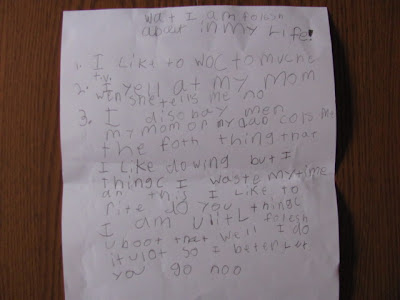 wat I am folesh
abowt in my Life!
1. I Like to woc to muche
t.v.
2. I yell at my mom
wen she tells me no
3. I disobay wen
my mom or my dad cols me
the foth thing that
I Like dowing but I
thingc I waste my time
an this I Like to
rite do you thingc
I am ulitl folesh
uboot that well I do
it ulot so I beter let
you go noo